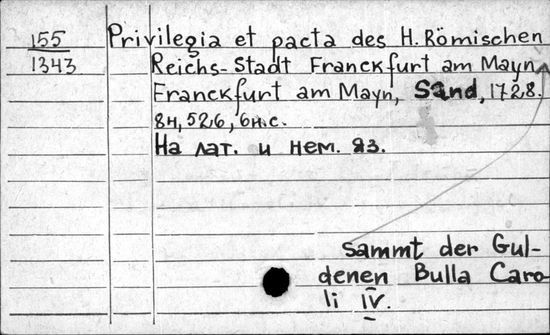 155
1343
Privilegia et pacta des H. Römischen
Reichs-Stadt Franckfurt am Mayn
Franckfurt am Mayn, Sand, 1728.
8н, 526, 6н.с.
На лат. и нем. яз.
sammt der Gul-
denen Bulla Caro-
li IV.